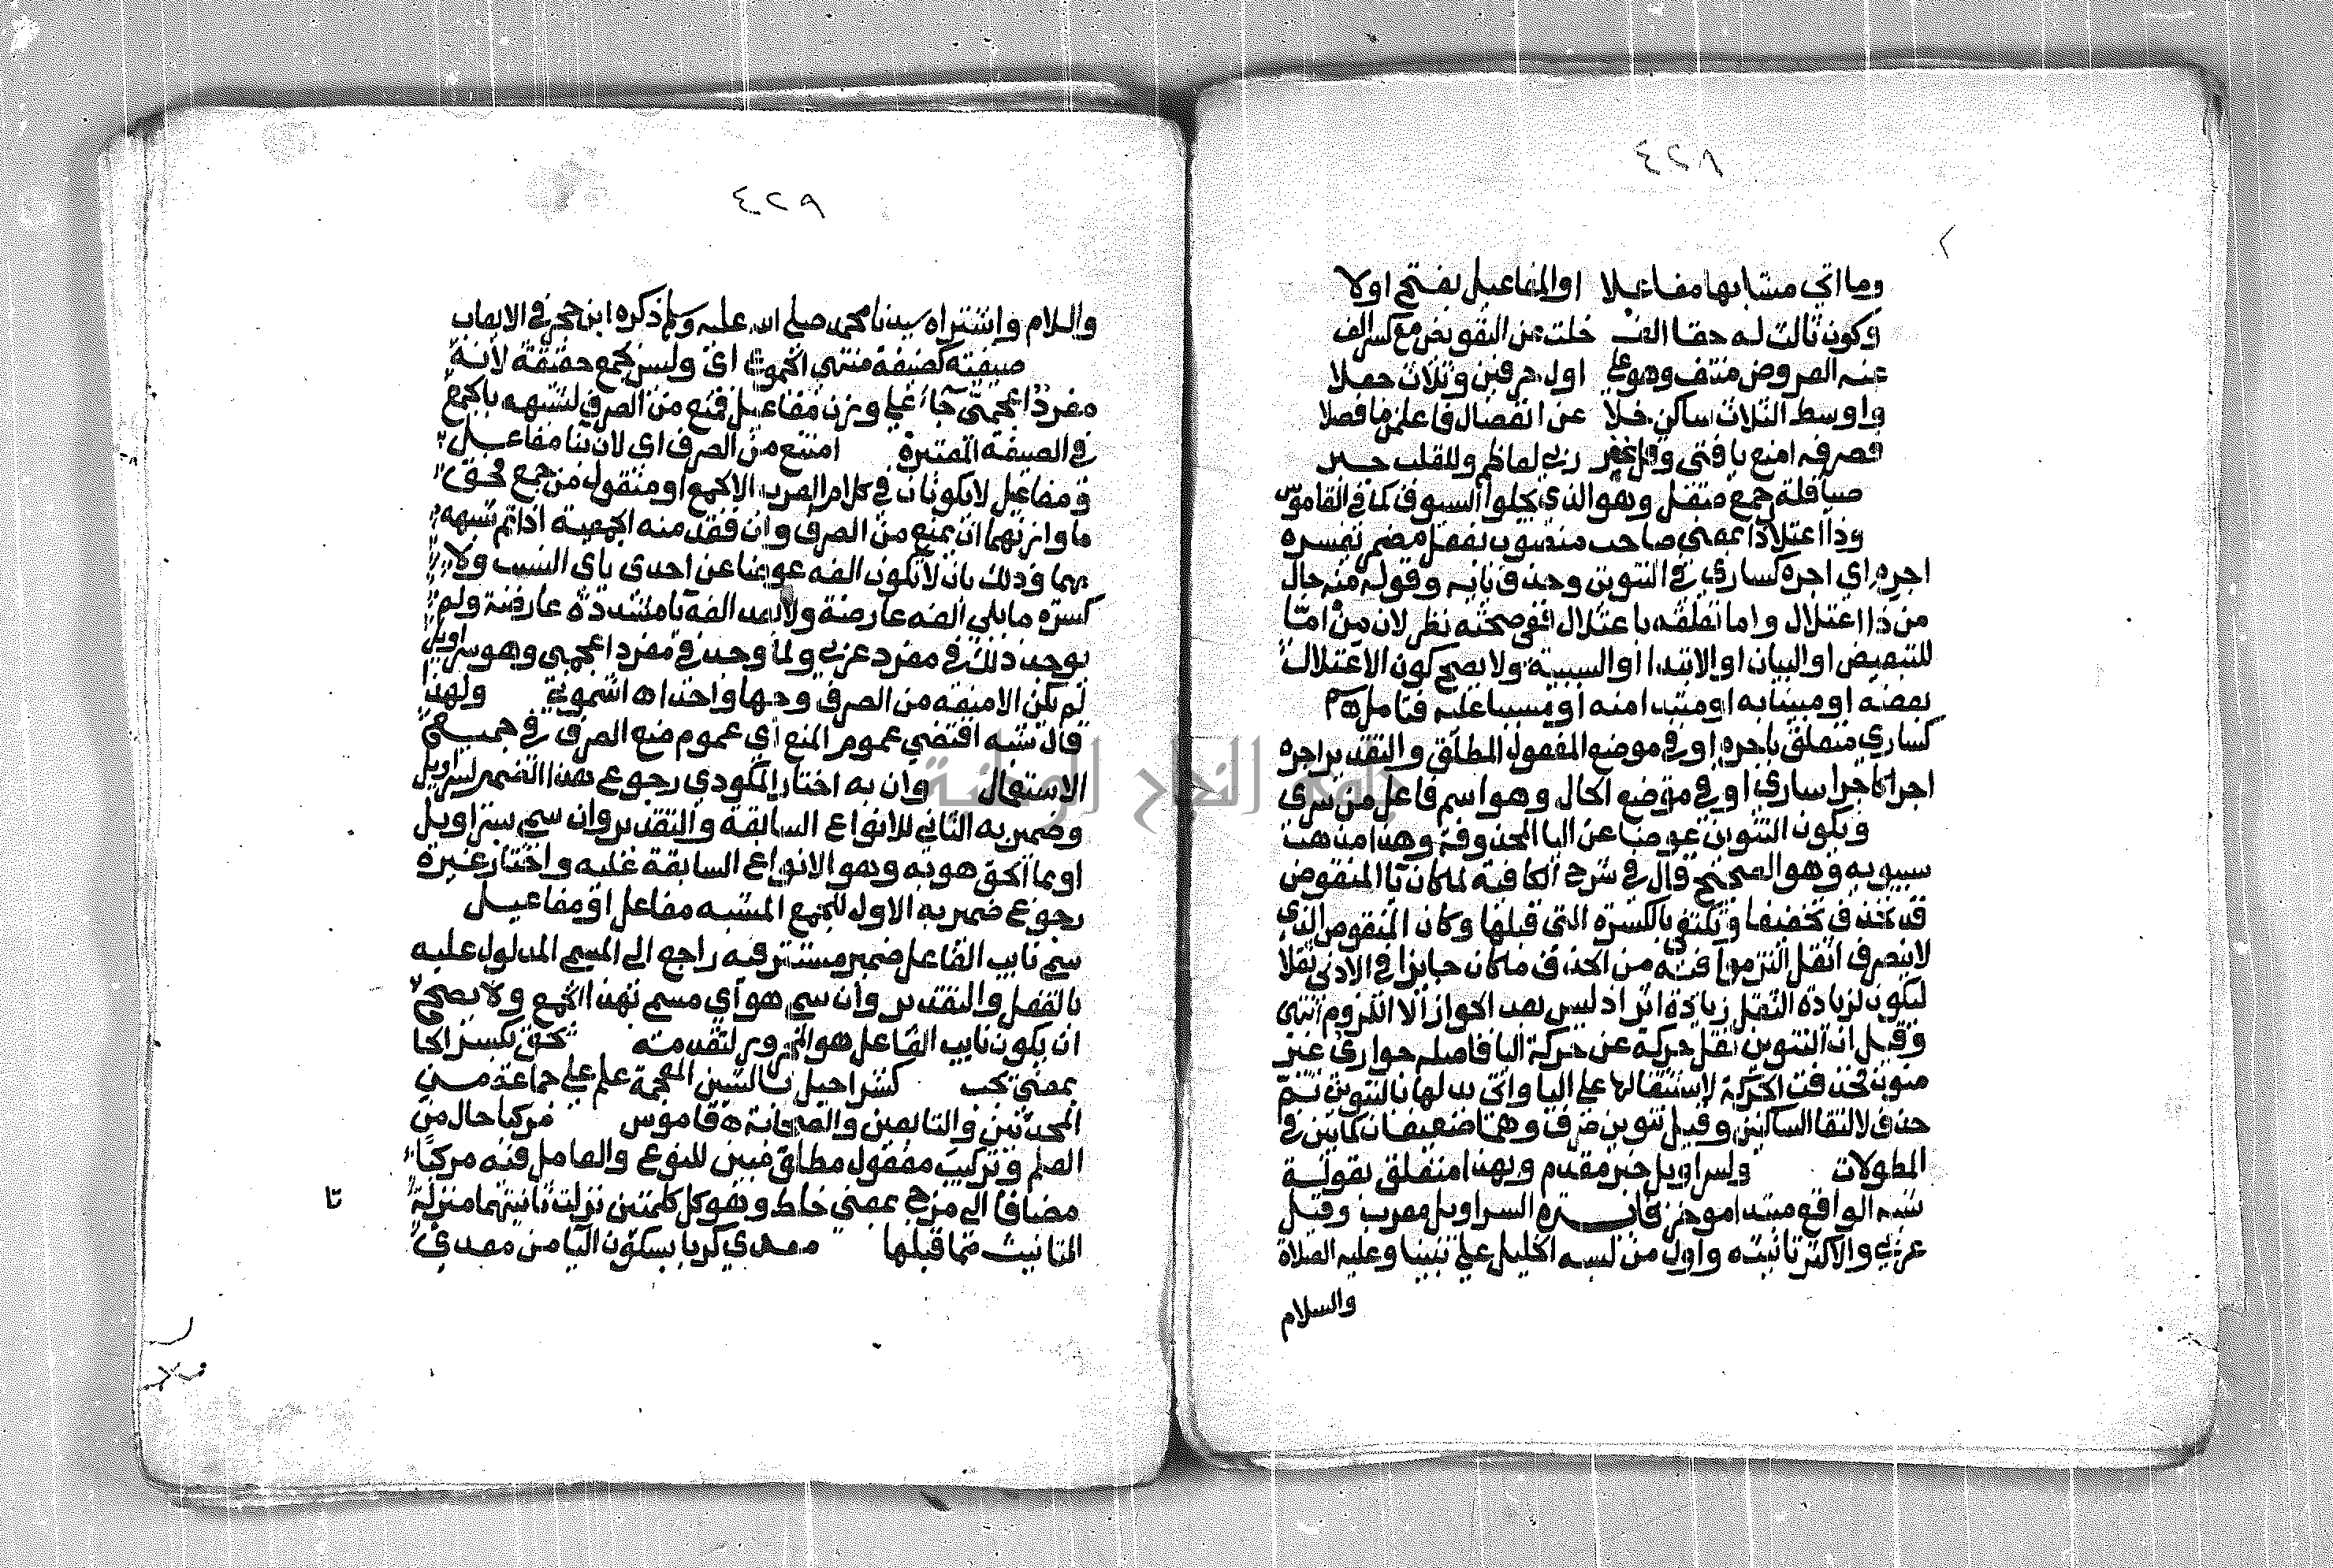 ٤٢٨
وما اتي مشابها مفاعلا او المفاعيل بفتح اولا
وكون ثالث له حقا الف خلت عن التعويض مع كسر الف
عنه العروض منتف وهو على اول حرفين وثلاث جعلا
واوسط الثلاث ساكن خلا عن انفصال فاعلمن ما فصلا
فصرفه امنع يا فتى وقل غفر ربي لناظم وللقلب جبر
صياقلة جمع صيقل وهو الذي يجلوا السيوف كما في القاموس
وذا اعتلال ذا بمعنى صاحب منصوب بفعل مضمر تفسره
اجره اي اجره كساري في التنوين وحذف يائه وقوله منه حال
من ذا اعتلال واما تعلقه باعتلال ففي صحته نظر لان من اما
للتبعيض او البيان او الابتدا او السببية ولا يصح كون الاعتلال
بعضه او مبينا به او مبتدا منه او مسببا عليه فتامل اهـ م
كساري متعلق باجره او في موضع المفعول المطلق والتقدير اجره
اجرا كاجرا ساري او في موضع الحال وهو اسم فاعل من سرى
ويكون التنوين عوضا عن اليا المحذوفة وهذا مذهب
سيبويه وهو الصحيح قال في شرح الكافية لما كان يا المنقوص
قد تحذف تخفيفا ويكتفى بالكسرة التي قبلها وكان المنقوص الذي
لا ينصرف اثقل التزموا فيه من الحذف ما كان جايزا في الادنى ثقلا
ليكون لزيادة الثقل زيادة اثر اذ ليس بعد الجواز الا اللزوم انتهى
وقيل ان التنوين بدل حركة عن حركة اليا فاصله جواري غير
منون فحذفت الحركة لاستثقالها على اليا واتى بدلها بالتنوين ثم
حذف لالتقا الساكنين وقيل تنوين صرف وهما ضعيفان كما بين في
المطولات ولسراويل خبر مقدم وبهذا متعلق بقوله
شبه الواقع مبتدا موخر فائدة السراويل معرب وقيل
عربي والاكثر تانيثه واول من لبسه الخليل على نبينا وعليه الصلاة
والسلام
٤٢٩
والسلام واشتراه سيدنا محمد صلى الله عليه وسلم ذكره ابن حجر في الايعاب
صيغته كصيغة منتهى الجموع اي وليس بجمع حقيقة لانه
مفرد اعجمي جاء على وزن مفاعيل فمنع من الصرف لشبهه بالجمع
في الصيغة المعتبرة امتنع من الصرف اي لان بنا مفاعيل
ومفاعل لا يكونان في كلام العرب الا لجمع او منقول من جمع فحق
ما وازنهما ان يمنع من الصرف وان فقد منه الجمعية اذا تم شبهه
بهما وذلك بان لا تكون الفه عوضا عن احدى ياي النسب ولا
كسرة ما يلي الفه عارضة ولا بعد الفه يا مشددة عارضة ولم
يوجد ذلك في مفرد عربي ولما وجد في مفرد اعجمي وهو سراويل
لم يكن الا منعه من الصرف وجها واحدا اهـ اشموني ولهذا
قال شبه اقتضى عموم المنع اي عموم منع الصرف في جميع
الاستعمال وان به اختار المكودي رجوع هذا الضمير لسراويل
وضمير به الثاني للانواع السابقة والتقدير وان سمي بسراويل
او بما لحق هو به وهو الانواع السابقة عليه واختار غيره
رجوع ضمير به الاول للجمع المشبه مفاعل او مفاعيل
سمي نايب الفاعل ضمير مستتر فيه راجع الى المسمى المدلول عليه
بالفعل والتقدير وان سمي هو اي مسمى بهذا الجمع ولا يصح
ان يكون نايب الفاعل هو المجرور لتقدمه لحق بكسر الحا
بمعنى تحب كشراحيل بالشين المعجمة علم على جماعة من
المحدثين والتابعين والصحابة اهـ قاموس مركبا حال من
العلم وتركيب مفعول مطلق مبين للنوع والعامل فيه مركبا
مضافا الى مزج بمعنى خلط وهو كل كلمتين نزلت ثانيتهما منزلة تا
التانيث مما قبلها معدي كربا بسكون اليا من معدي